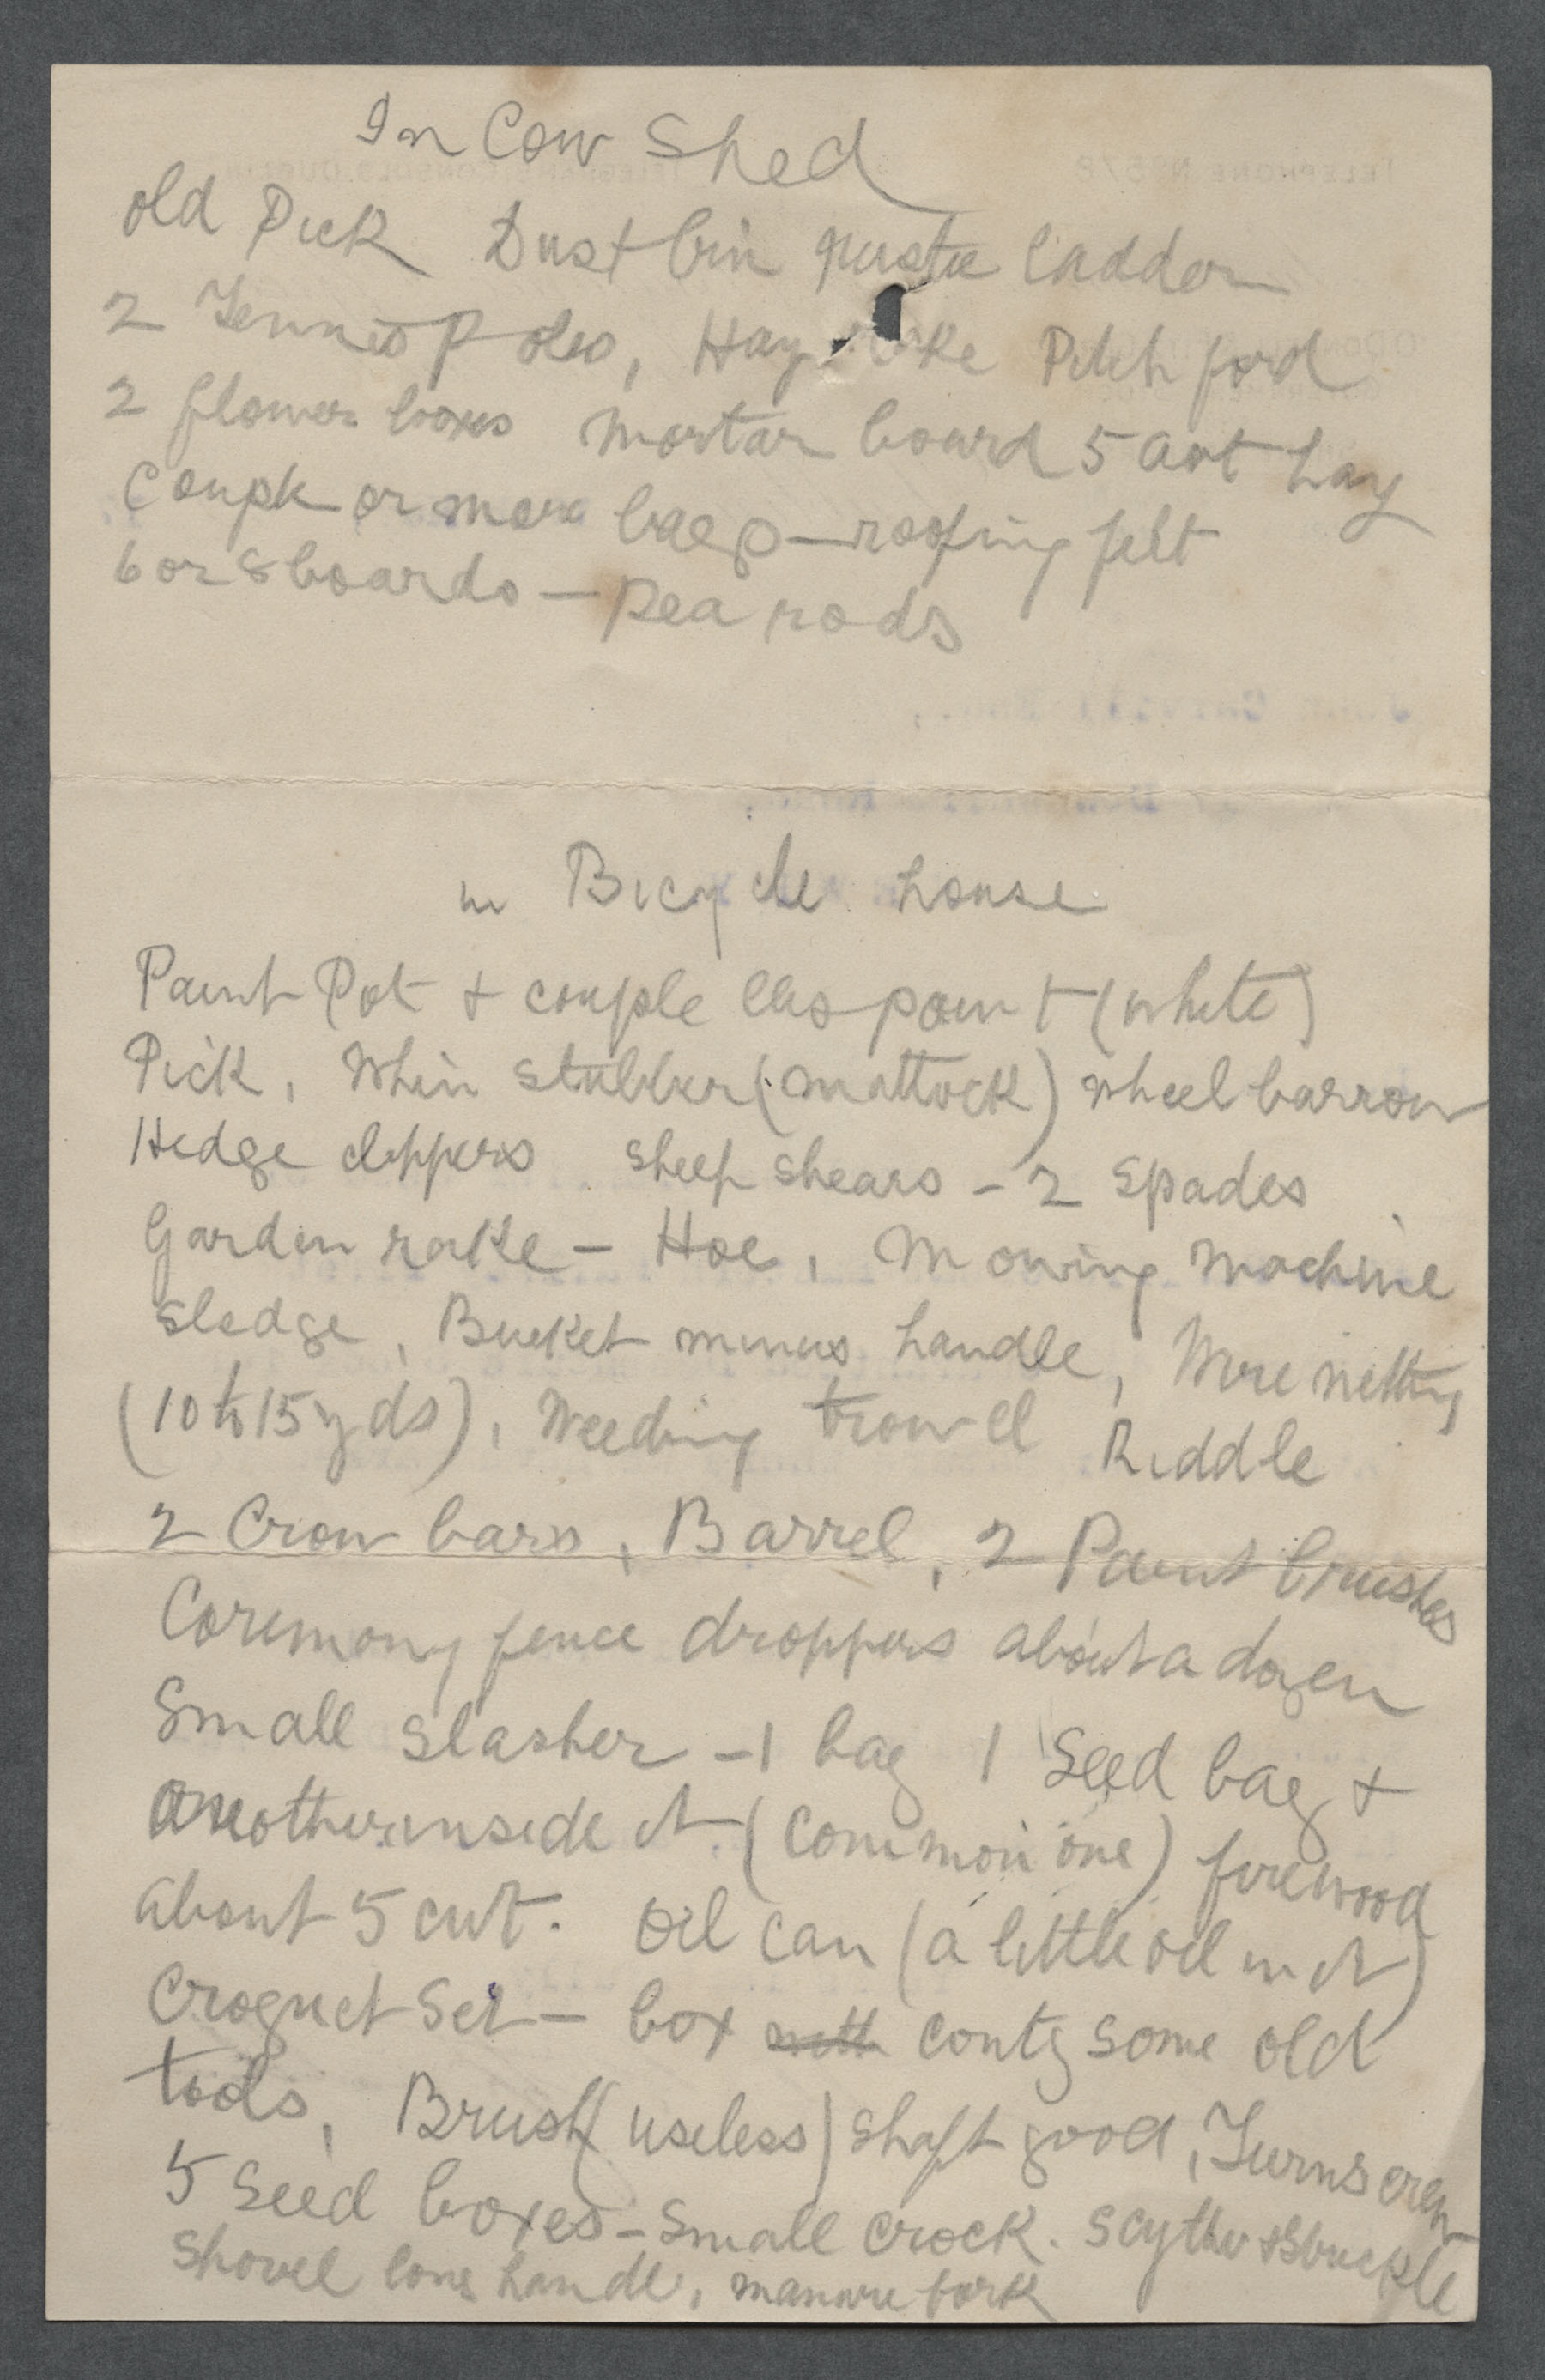 In Cow Shed
old Pick Dust bin rustic ladder
2 Tennis Poles, Hay rake Pitch ford
2 flower boxes mortar board 5 cwt hay
Couple or more bags – roofing felt
6 or 8 boards – Pea rods
in Bicycle house
Paint Pot + couple lbs paint (white)
Pick, Whin stubber (mattock) wheel barrow
Hedge clippers sheep shears – 2 Spades
Garden rake – Hoe, Mowing Machine
sledge, Bucket minus handle, Wire netting
(10 to 15 yds), Weeding trowel Riddle
2 Crow bars, Barrel, 2 Paint brushes
fence droppers about a dozen
Small slasher – 1 bag 1 Seed bag +
another inside it (Common one) firewood
about 5 cwt. Oil can (a little oil in it)
Croquet Set – box with contg some old
tools, Brush (useless) shaft good, Turnscrew
5 Seed boxes – Small crock. Scythe +
Shovel long handle, manure fork